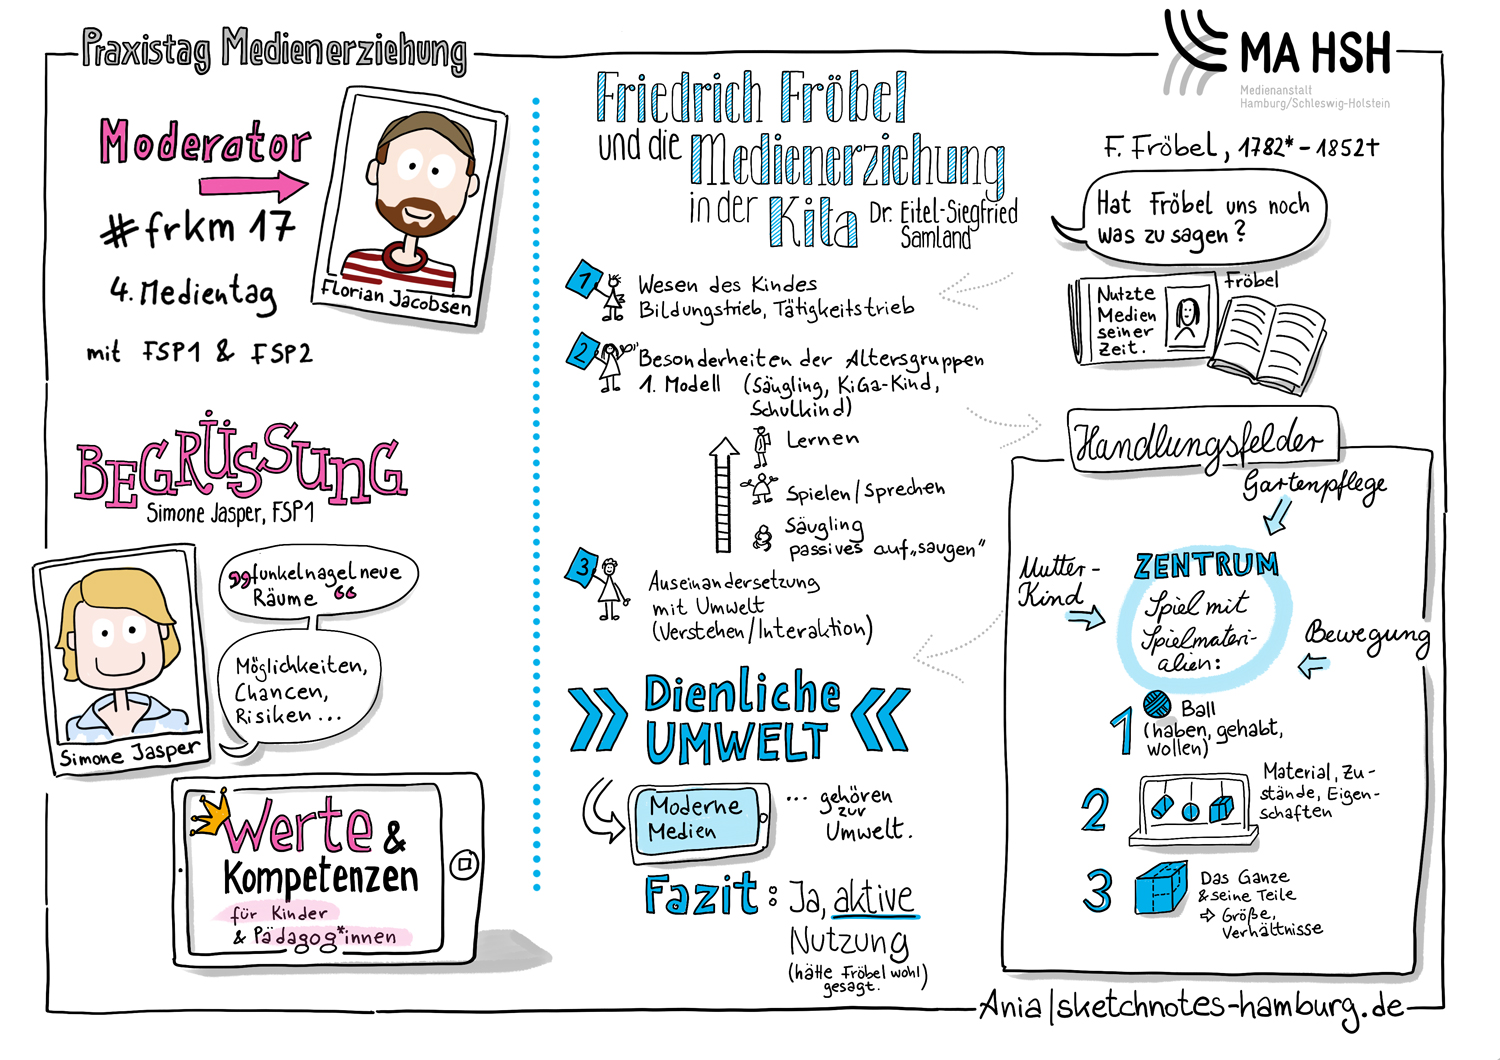 Praxistag Medienerziehung
MA HSH
Medienanstalt
Hamburg/Schleswig-Holstein
Moderator
#frkm 17
4. Medientag
mit FSP1 & FSP2
Florian Jacobsen
BEGRÜSSUNG
Simone Jasper, FSP1
Simone Jasper
„funkelnagelneue
Räume“
Möglichkeiten,
Chancen,
Risiken ...
Werte &
Kompetenzen
für Kinder
& Pädagog*innen
Friedrich Fröbel
und die Medienerziehung
in der Kita
Dr. Eitel-Siegfried
Samland
1
Wesen des Kindes
Bildungstrieb, Tätigkeitstrieb
2
Besonderheiten der Altersgruppen
1. Modell (Säugling, KiGa-Kind,
Schulkind)
Lernen
Spielen/Sprechen
Säugling
passives auf„saugen“
3
Auseinandersetzung
mit Umwelt
(Verstehen/Interaktion)
Dienliche
UMWELT
Moderne
Medien
... gehören
zur
Umwelt.
Fazit: Ja, aktive
Nutzung
(hätte Fröbel wohl
gesagt.)
F. Fröbel, 1782* - 1852†
Hat Fröbel uns noch
was zu sagen?
Nutzte
Medien
seiner
Zeit.
Fröbel
Handlungsfelder
Gartenpflege
Mutter-
Kind
ZENTRUM
Spiel mit
Spielmateri-
alien:
Bewegung
1 Ball
(haben, gehabt,
wollen)
2
Material, Zu-
stände, Eigen-
schaften
3
Das Ganze
& seine Teile
⇨ Größe,
Verhältnisse
Ania|sketchnotes-hamburg.de